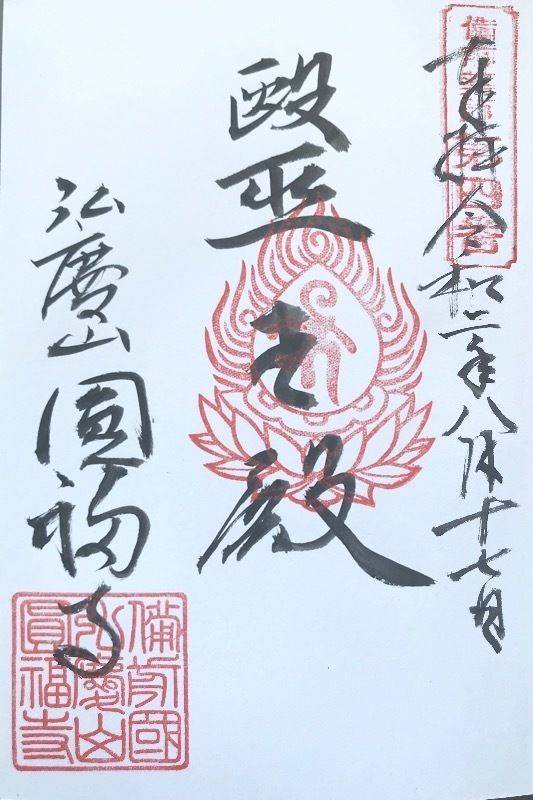 奉拝 令和二年八月十七日
毉王殿
弘慶山 圓福寺
備前國
弘慶山
圓福寺